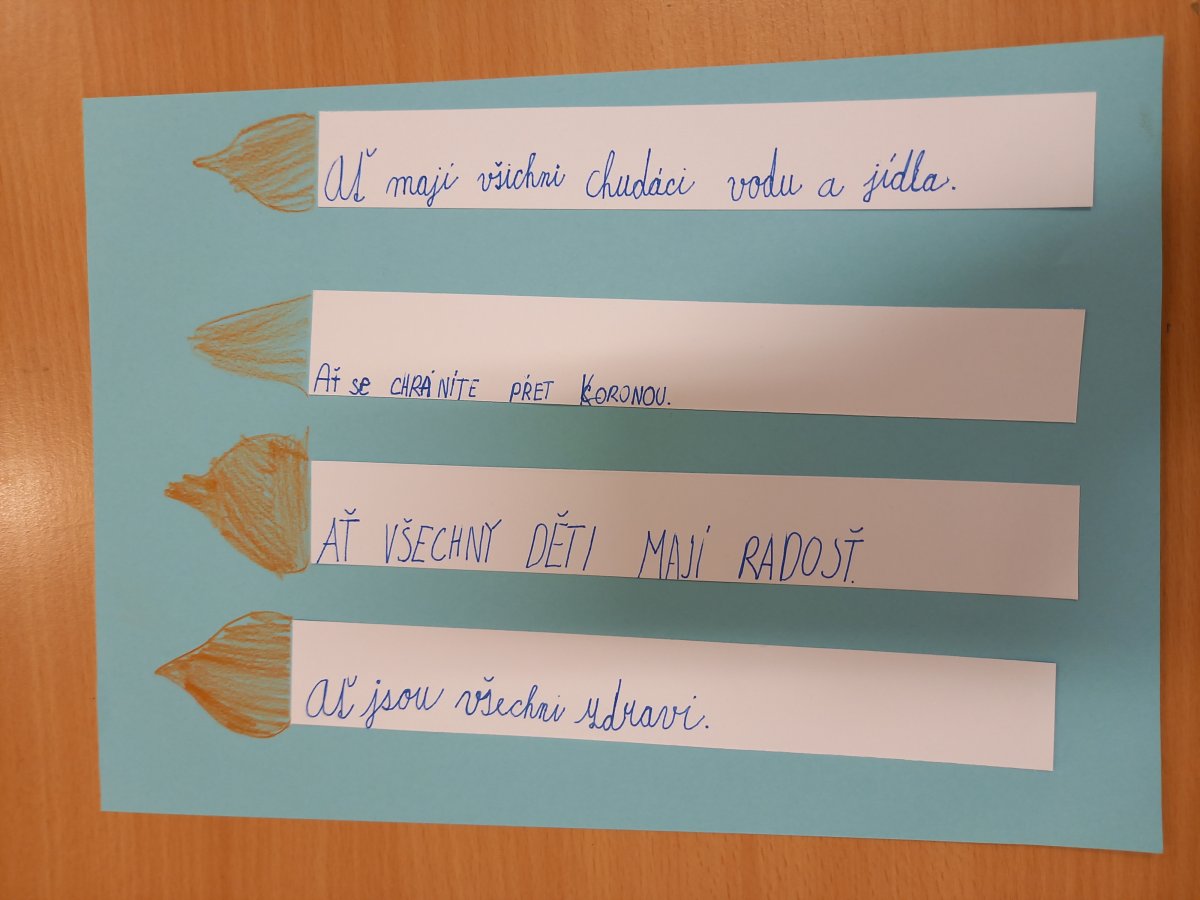 Ať mají všichni chudáci vodu a jídla.
Ať se CHRÁNÍTE PŘET KORONOU.
AŤ VŠECHNY DĚTI MAJÍ RADOSŤ.
Ať jsou všechni zdraví.